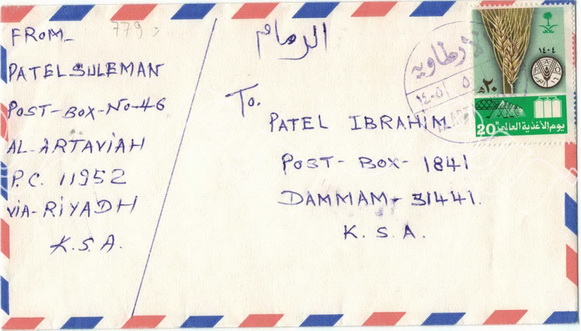 FROM_
779
PATEL SULEMAN
POST-BOX-No-46
AL-ARTAVIAH
P.C. 11952
VIA-RIYADH
K.S.A.
الرمام
To.
PATEL IBRAHIM
POST-BOX-1841
DAMMAM-31441.
K. S. A.
الأرطاويه
١٤٠٤
٢٠
20
يوم الأغذية العالمي